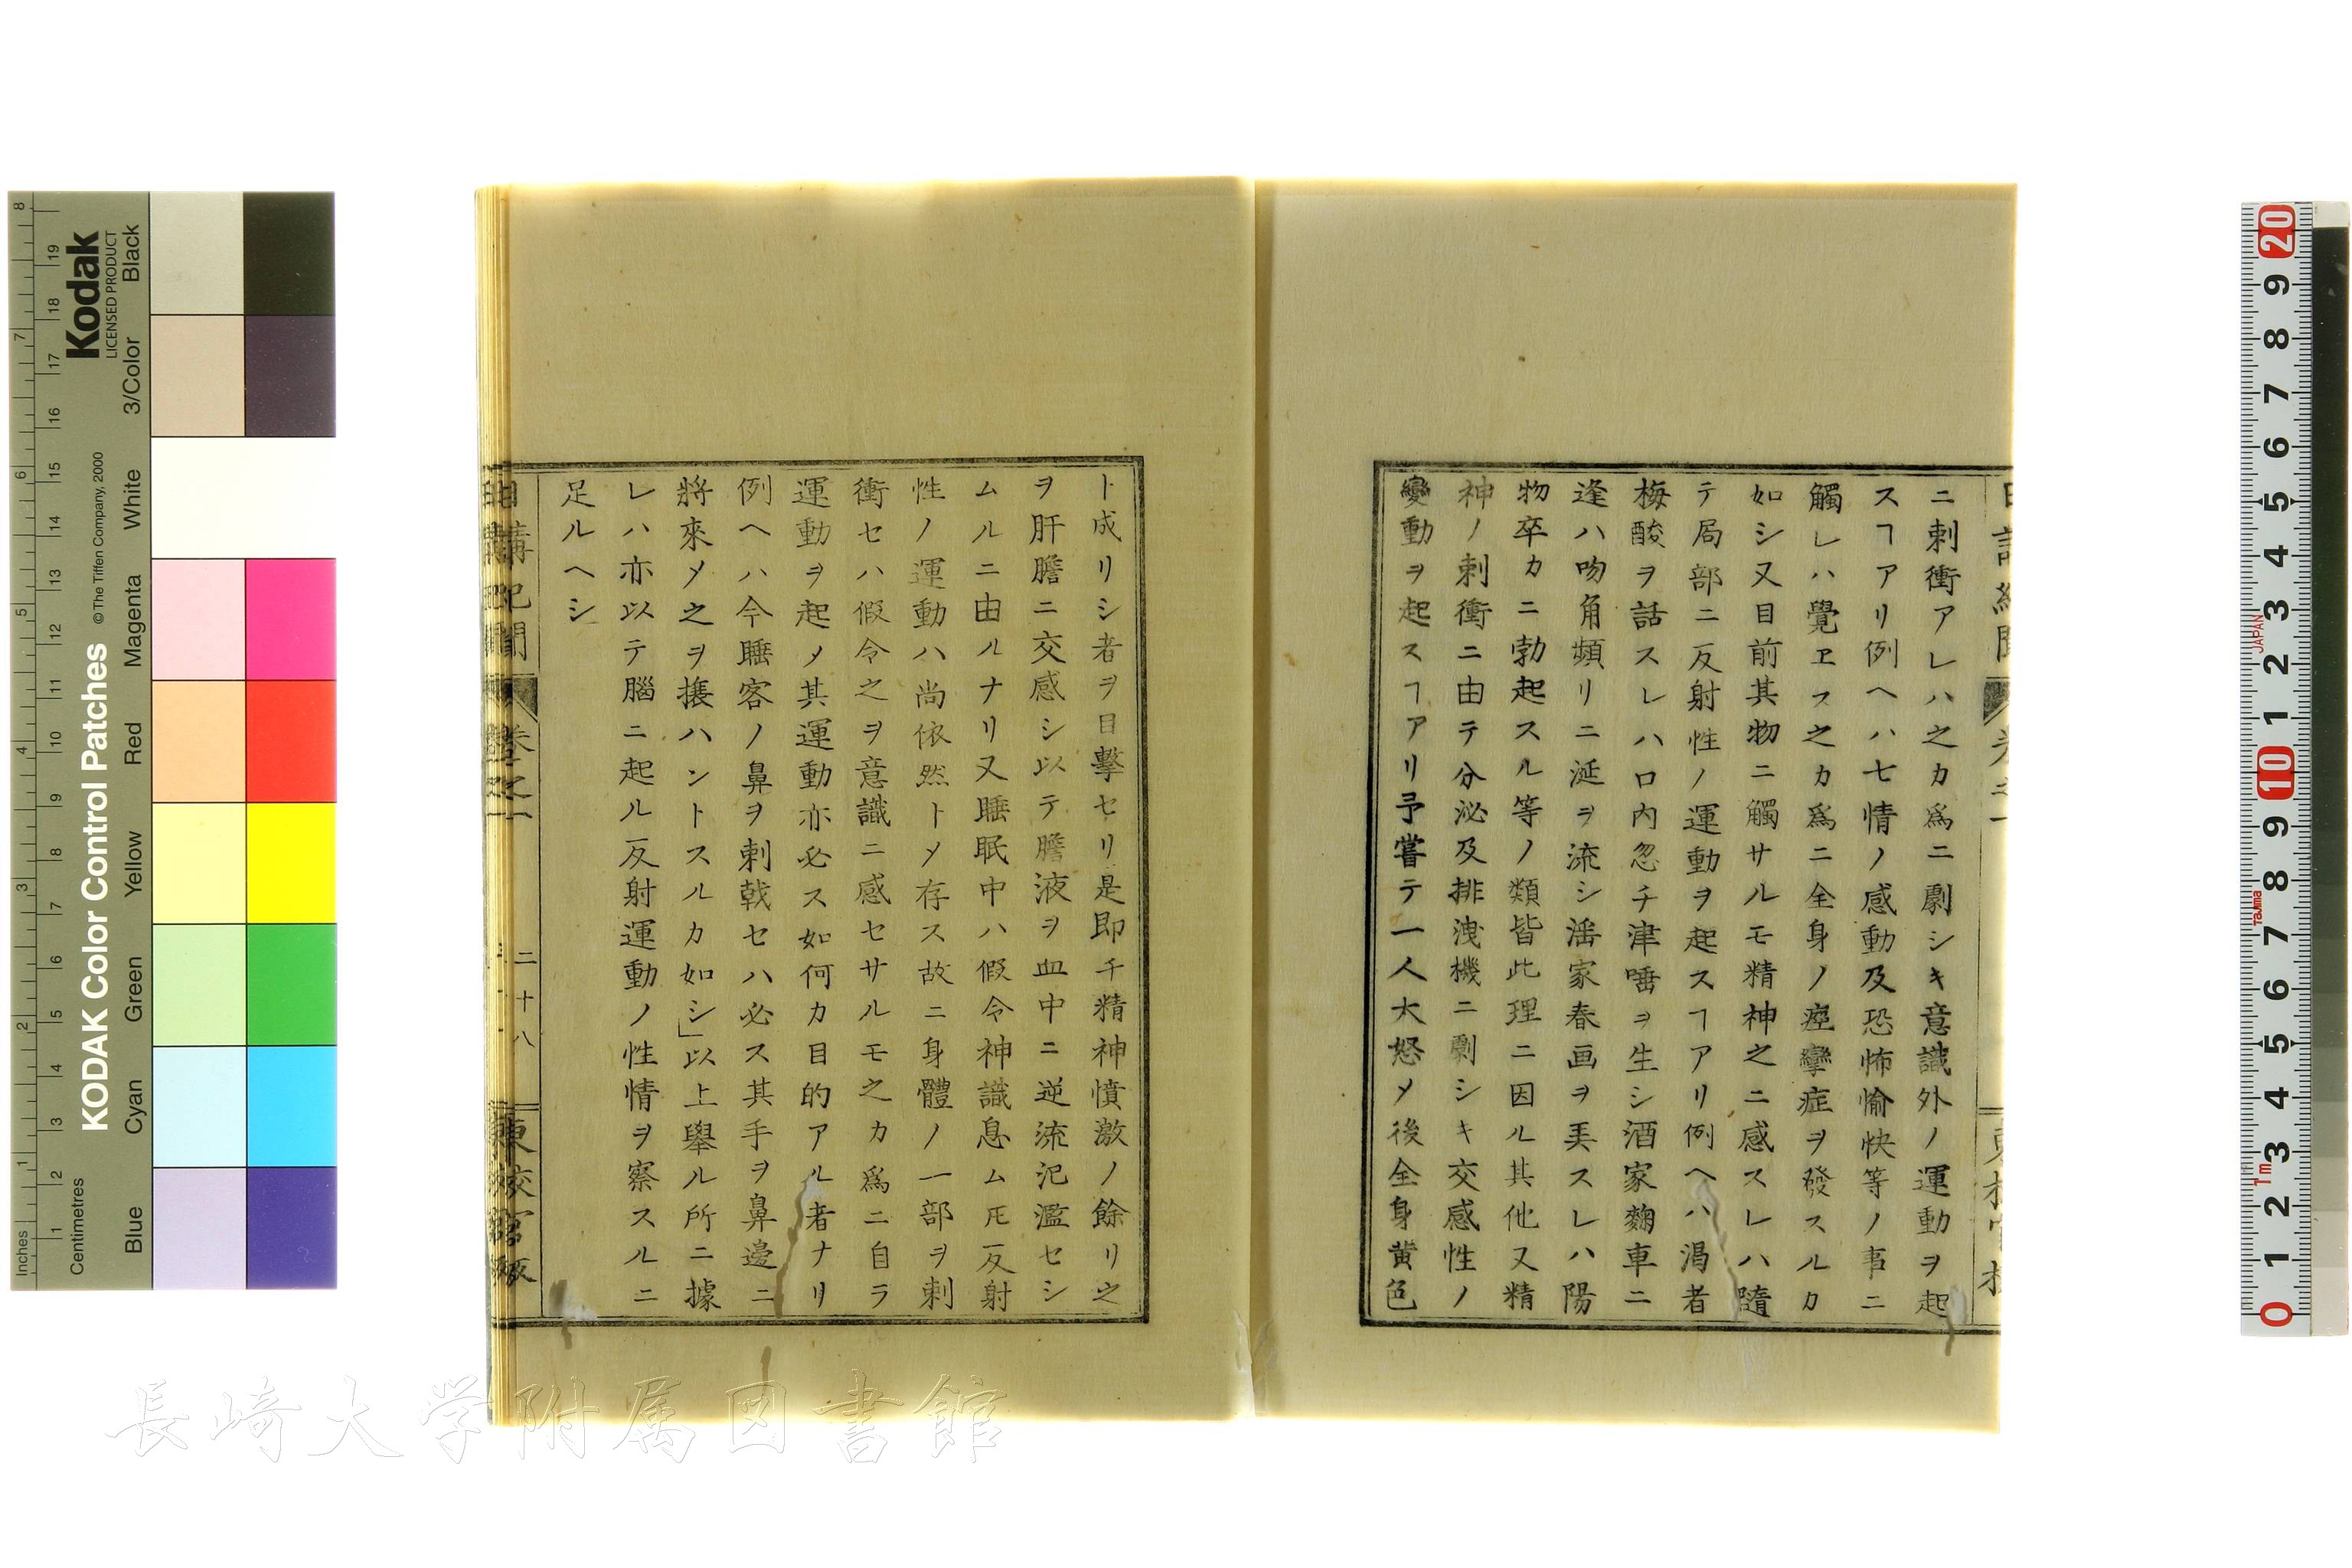 ニ刺衝アレハ之カ爲ニ劇シキ意識外ノ運動ヲ起
スヿアリ例ヘハ七情ノ感動及恐怖愉快等ノ事ニ
觸レハ覺ヱス之カ爲ニ全身ノ痙攣症ヲ發スルカ
如シ又目前其物ニ觸サルモ精神之ニ感スレハ隨
テ局部ニ反射性ノ運動ヲ起スヿアリ例ヘハ渇者
梅酸ヲ話スレハ口内忽チ津唾ヲ生シ酒家麴車ニ
逢ハ吻角頻リニ涎ヲ流シ婬家春画ヲ弄スレハ陽
物卒カニ勃起スル等ノ類皆此理ニ因ル其他又精
神ノ刺衝ニ由テ分泌及排洩機ニ劇シキ交感性ノ
變動ヲ起スヿアリ予嘗テ一人大怒メ後全身黄色
ト成リシ者ヲ目擊セリ是即チ精神憤激ノ餘リ之
ヲ肝膽ニ交感シ以テ膽液ヲ血中ニ逆流汜濫セシ
ムルニ由ルナリ又睡眠中ハ假令神識息ム𪜈反射
性ノ運動ハ尚依然トメ存ス故ニ身體ノ一部ヲ刺
衝セハ假令之ヲ意識ニ感セサルモ之カ爲ニ自ラ
運動ヲ起メ其運動亦必ス如何カ目的アル者ナリ
例ヘハ今睡客ノ鼻ヲ刺戟セハ必ス其手ヲ鼻邊ニ
將來メ之ヲ攘ハントスルカ如シ」以上擧ル所ニ據
レハ亦以テ腦ニ起ル反射運動ノ性情ヲ察スルニ
足ルヘシ
日講紀聞 卷之一 二十八
長崎大学附属図書館
Kodak
LICENSED PRODUCT
KODAK Color Control Patches
© The Tiffen Company, 2000
Inches
Centimetres
Blue Cyan Green Yellow Red Magenta White 3/Color Black
1 2 3 4 5 6 7 8
1 2 3 4 5 6 7 8 9 10 11 12 13 14 15 16 17 18 19
20 9 8 7 6 5 4 3 2 1 10 9 8 7 6 5 4 3 2 1 0
JAPAN
Tajima
1m